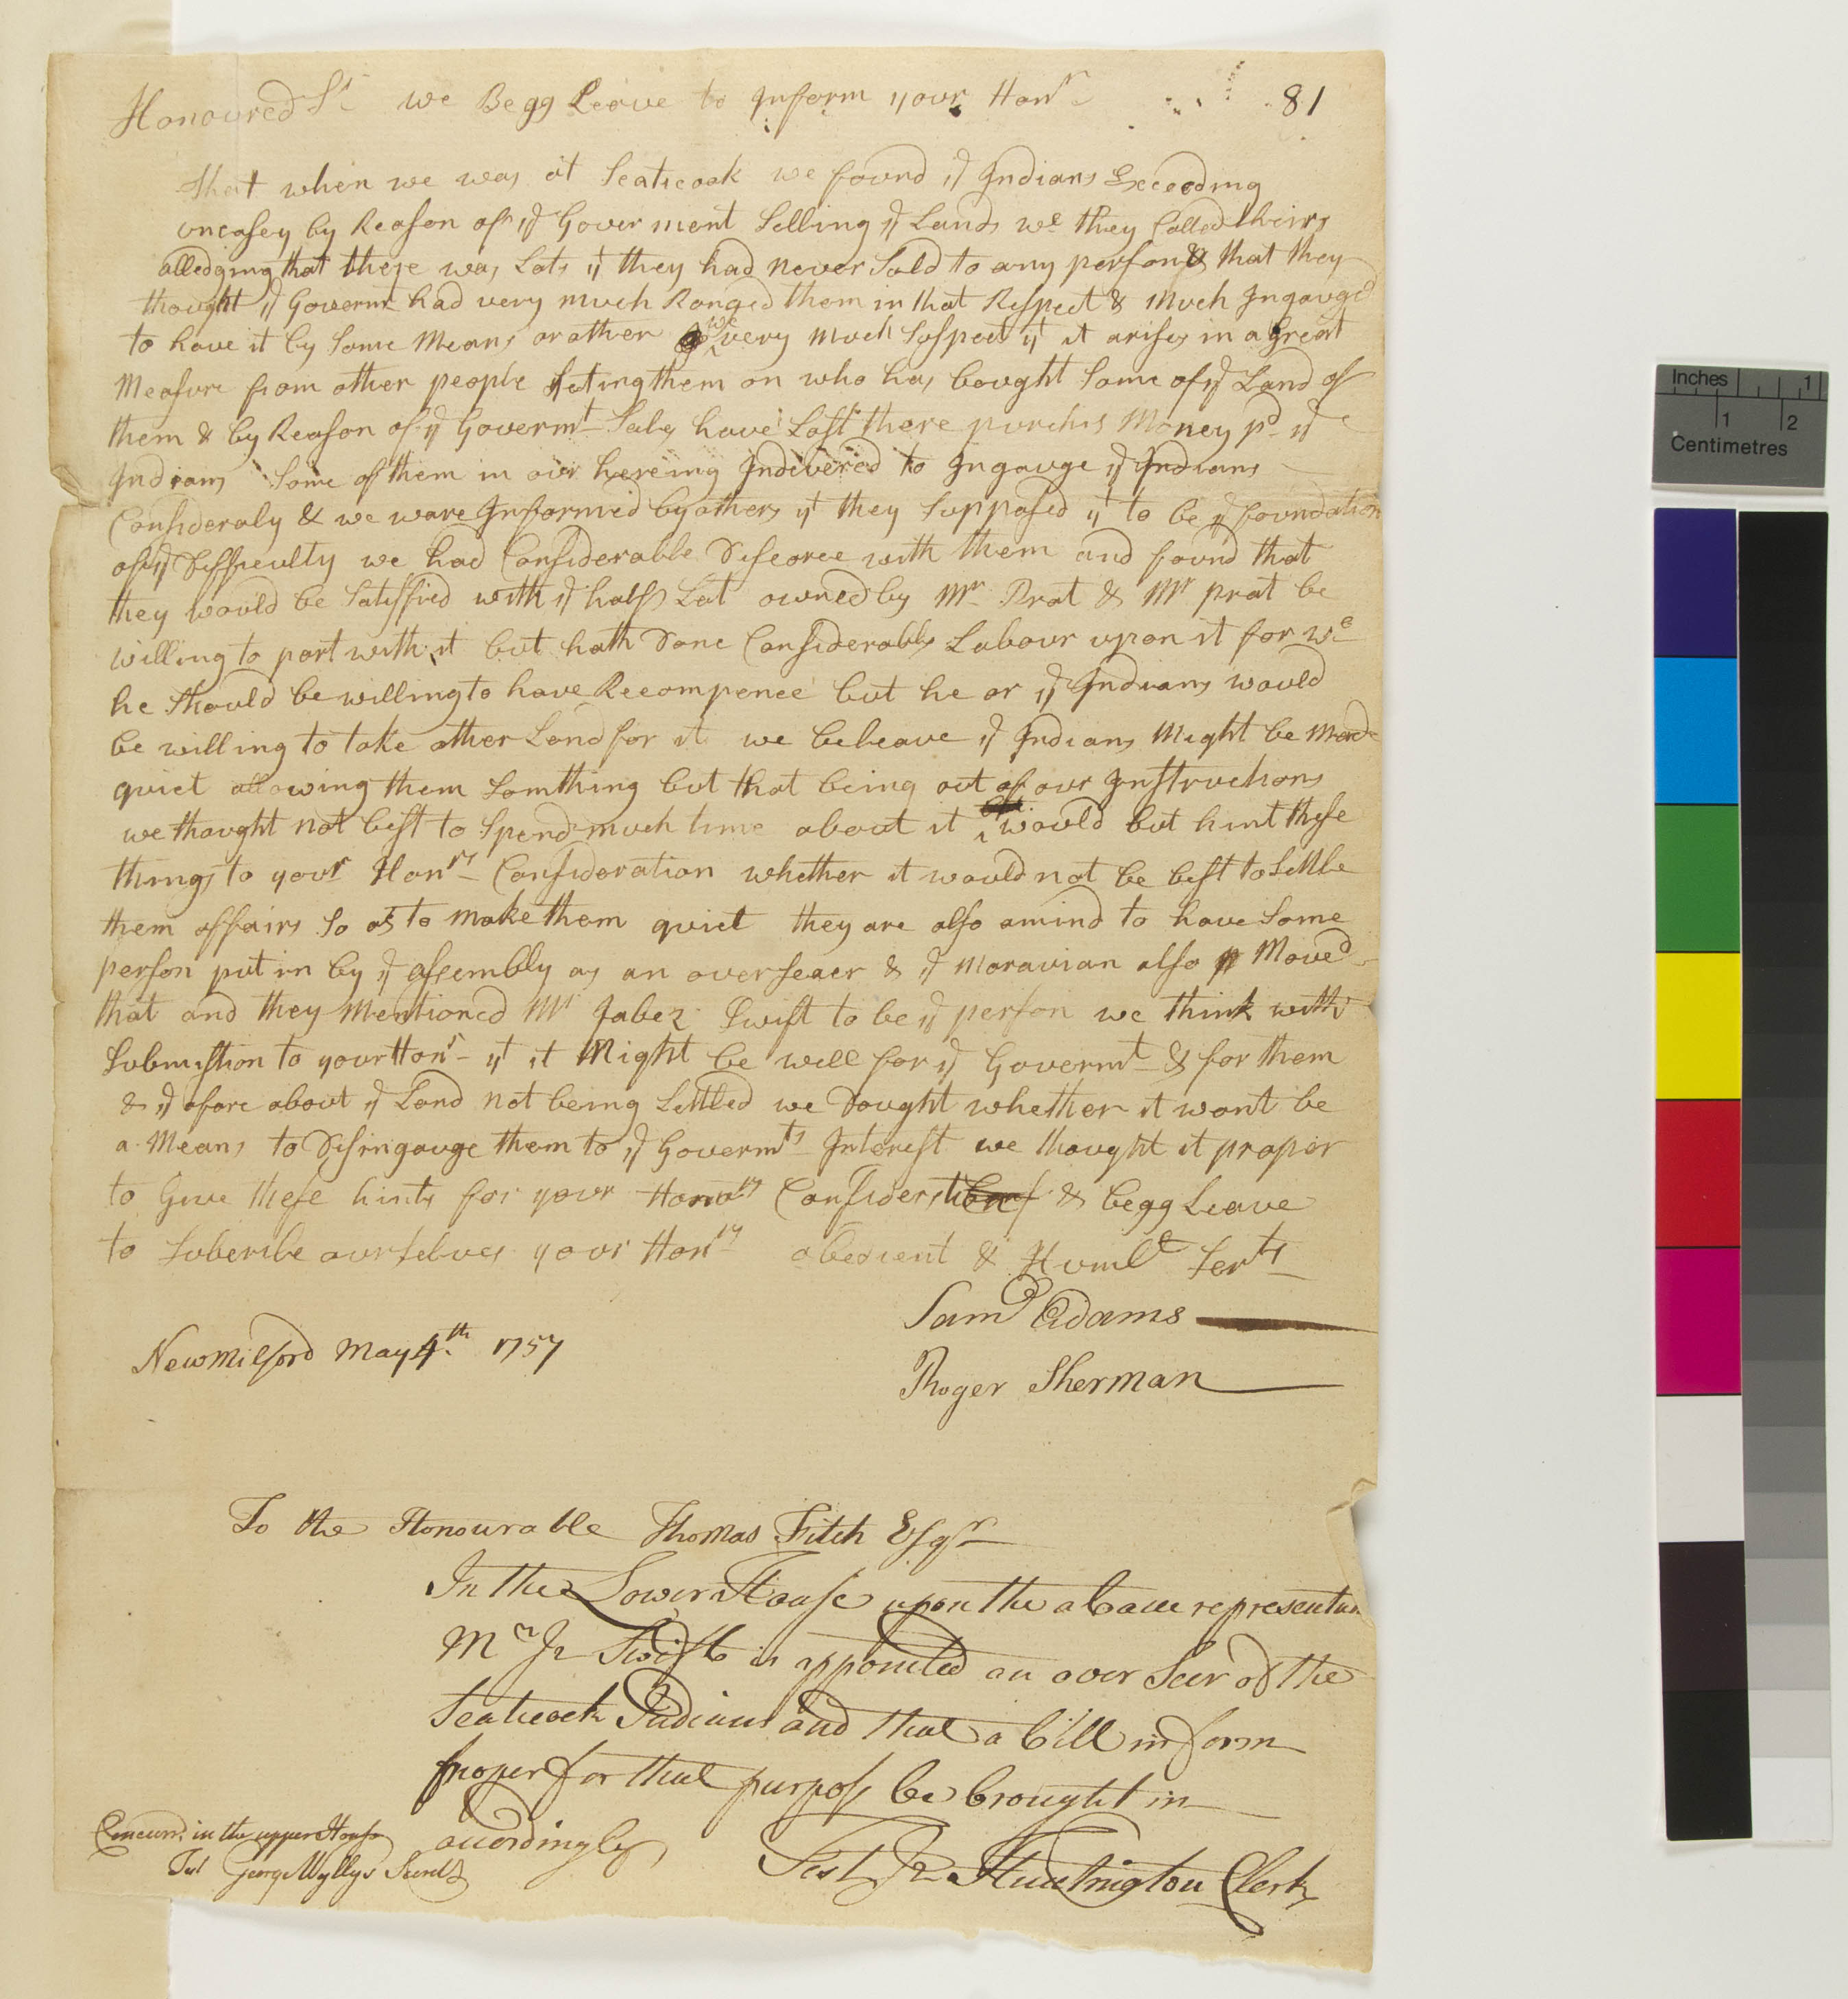 81
Honoured Sr we Begg Leave to Inform your Honrs
that when we was at Scaticook we found ye Indians Exceeding
uneasey by Reason of ye Goverment Selling ye Lands wc they Called theirs
alledging that these was Lots yt they had never Sold to any person & that they
thought ye Governt had very much Ronged them in that Respect & Much Ingauged
to have it by Some Means or other we very much Suspect yt it arises in a Great
Measure from other people seting them on who has bought Some of ye Land of
them & by Reason of ye Govermt Sales have Lost there purchis Money pd ye
Indians Some of them in our hereing Indevered to Ingauge ye Indians
Consideraly & we ware Informed by others yt they Supposed yt to be ye foundation
of ye Difficulty we had Considerable Discorce with them and found that
they would be Satisfied with ye half Lot owned by Mr Prat & Mr prat be
willing to part with it but hath Done Considerable Labour upon it for wc
he Should be willing to have Recompence but he or ye Indians would
be willing to take other Land for it we beleave ye Indians Might be Made
quiet allowing them Somthing but that being out of our Instructions
we thought not best to Spend much time about it would but hint these
things to your Honrs Consideration whether it would not be best to Settle
them affairs So as to Make them quiet they are also amind to have Some
person put in by ye assembly as an overseaer & ye Moravian also Moved
that and they Mentioned Mr Jabez Swift to be ye person we think with
Submistion to your Honrs yt it Might be well for ye Govermt & for them
& ye afare about ye Land not being Settled we Dought whether it wont be
a Means to Disingauge them to ye Govermts Interest we thought it proper
to Give these hints for your Honours Consideration & begg Leave
to Subcribe ourselves your Honrs obedient & Humle Serts
Saml Adams
Newmilford May 4th 1757
Roger Sherman
To the Honourable Thomas Fitch Esqr
In the Lower House upon the above representan
Mr Jz Swift is appointed an over Seer of the
Scatecook Indians and that a bill in form
proper for that purpose be brought in
accordingly
Test Jz Huntington Clerk
Concurd in the upper House
Test George Wyllys Secretr
Inches 1
1 2
Centimetres